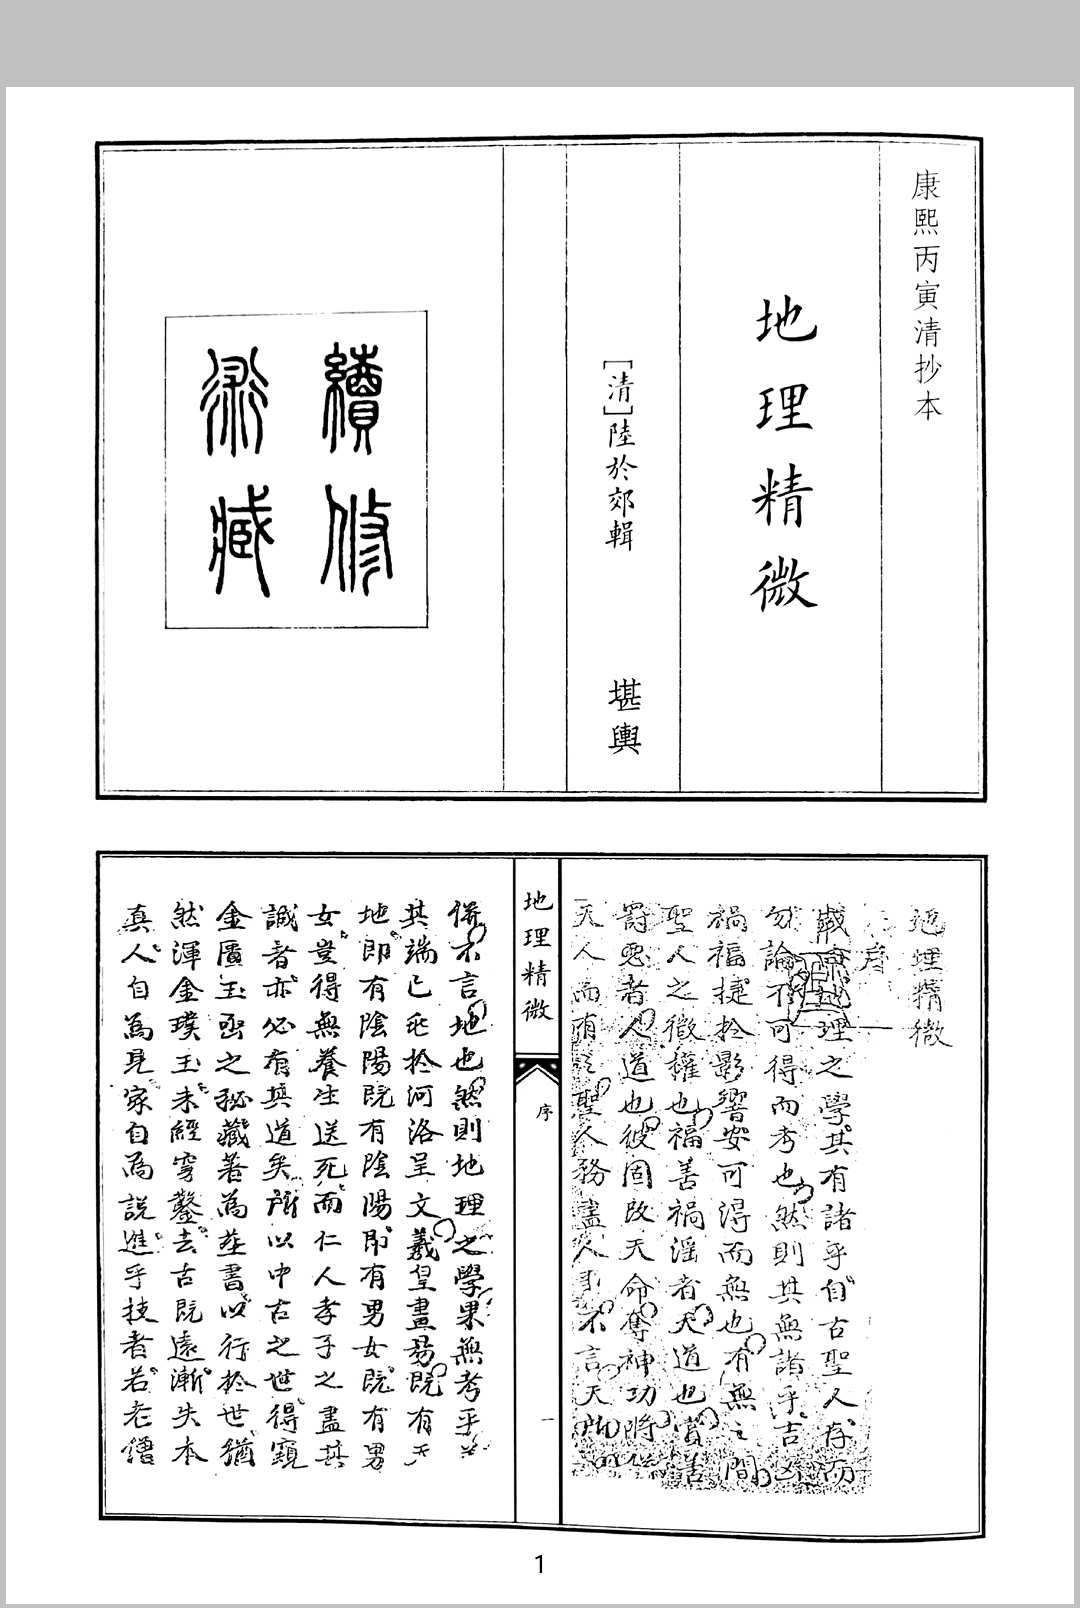 康熙丙寅清抄本
地理精微
[清]陸於郊輯
堪輿
續修
術藏
地理精微
序
載京地理之學其有諸乎自古聖人存而
勿論不可得而考也然則其無諸乎吉凶
禍福捷於影響安可得而無也有無之間
聖人之微權也福善禍淫者天道也賞善
罰惡者人道也彼固改天命奪神功將併
天人而有之聖人務盡人事不言天所以
併不言地也然則地理之學果無考乎
其端已兆於河洛呈文羲皇畫易既有天
地即有陰陽既有陰陽即有男女既有男
女豈得無養生送死而仁人孝子之盡其
誠者亦必有其道矣所以中古之世得窺
金匱玉函之秘藏著為葬書以行於世猶
然渾金璞玉未經穿鑿去古既遠漸失本
真人自為見家自為說進乎技者若老僧
地理精微
序
一
1